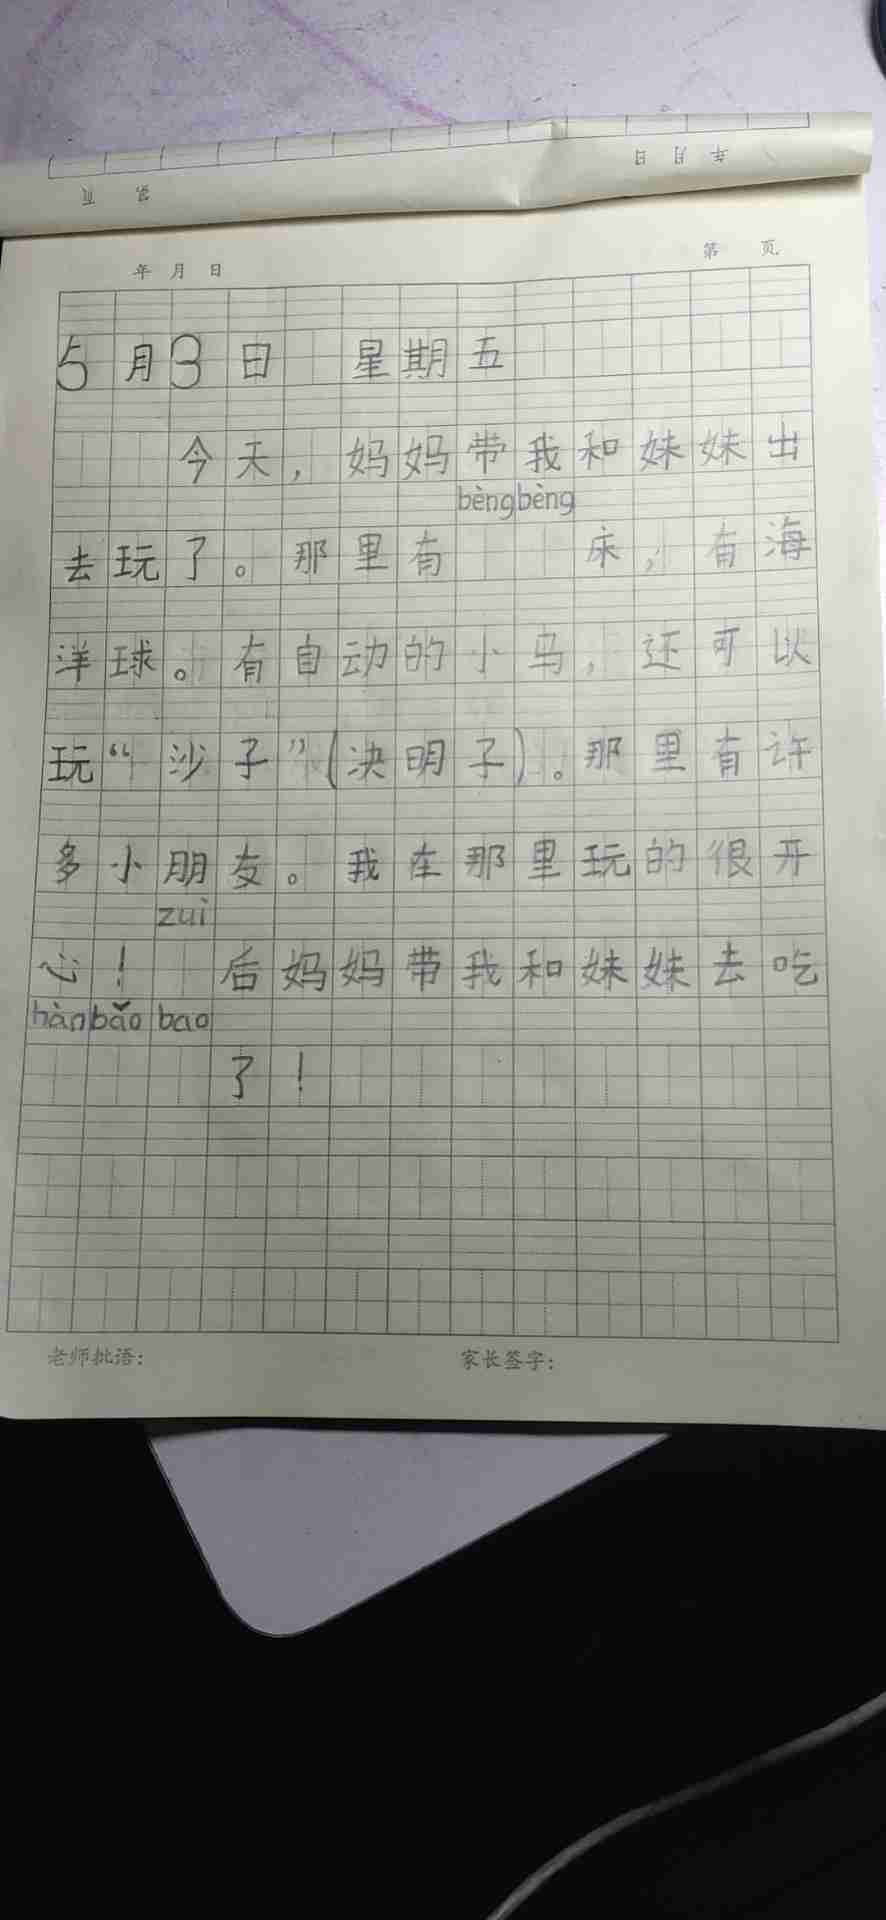 日 月 年
第 页
年 月 日
第 页
5月3日 星期五
今天，妈妈带我和妹妹出
bèngbèng
去玩了。那里有 床，有海
洋球。有自动的小马，还可以
玩“沙子”(决明子)。那里有许
多小朋友。我在那里玩的很开
zuì
心！ 后妈妈带我和妹妹去吃
hànbǎo bao
了！
老师批语：
家长签字：